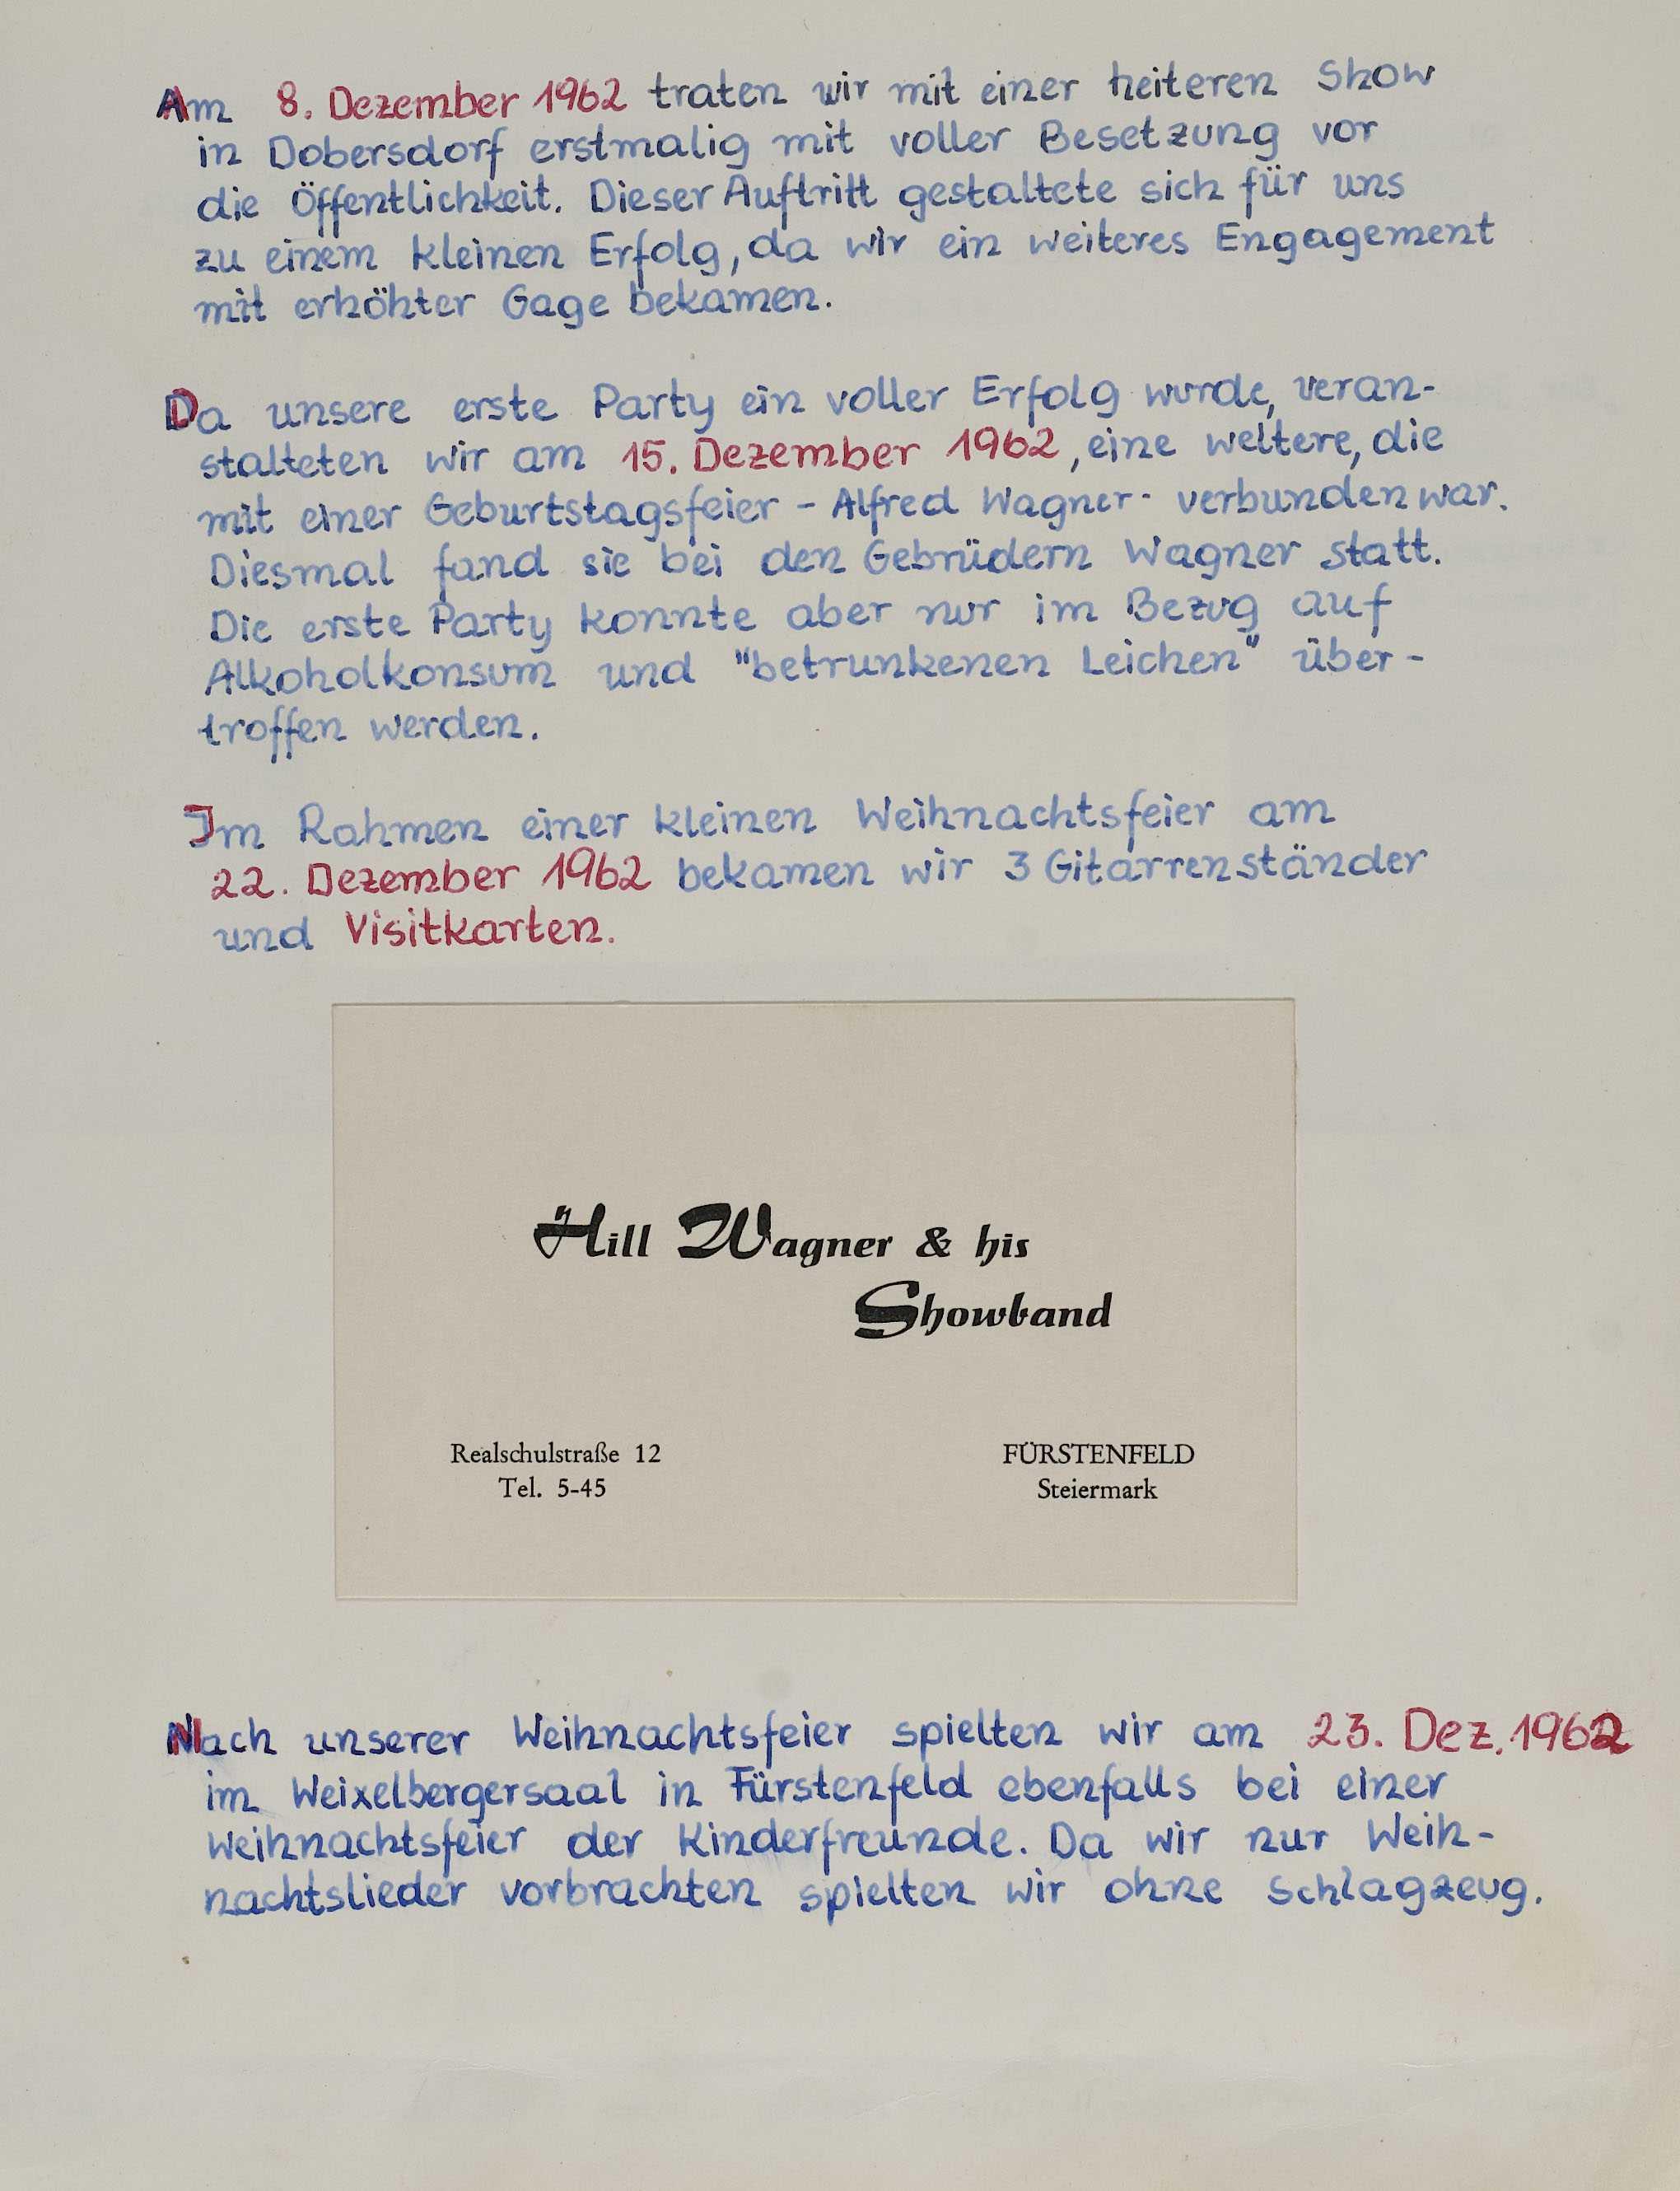 Am 8. Dezember 1962 traten wir mit einer heiteren Show
in Dobersdorf erstmalig mit voller Besetzung vor
die Öffentlichkeit. Dieser Auftritt gestaltete sich für uns
zu einem kleinen Erfolg, da wir ein weiteres Engagement
mit erhöhter Gage bekamen.
Da unsere erste Party ein voller Erfolg wurde, veran-
stalteten wir am 15. Dezember 1962, eine weitere, die
mit einer Geburtstagsfeier - Alfred Wagner - verbunden war.
Diesmal fand sie bei den Gebrüdern Wagner statt.
Die erste Party konnte aber nur im Bezug auf
Alkoholkonsum und "betrunkenen Leichen" über-
troffen werden.
Im Rahmen einer kleinen Weihnachtsfeier am
22. Dezember 1962 bekamen wir 3 Gitarrenständer
und Visitkarten.
Hill Wagner & his
Showband
Realschulstraße 12
Tel. 5-45
FÜRSTENFELD
Steiermark
Nach unserer Weihnachtsfeier spielten wir am 23. Dez. 1962
im Weixelbergersaal in Fürstenfeld ebenfalls bei einer
Weihnachtsfeier der Kinderfreunde. Da wir nur Weih-
nachtslieder vorbrachten spielten wir ohne Schlagzeug.